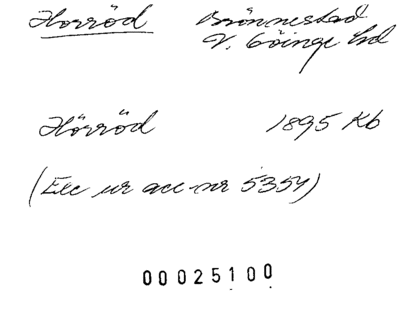 Horröd Brönnestad
V. Göinge hd
Hörröd 1895 Kb
(Exc ur acc nr 5354)
00025100